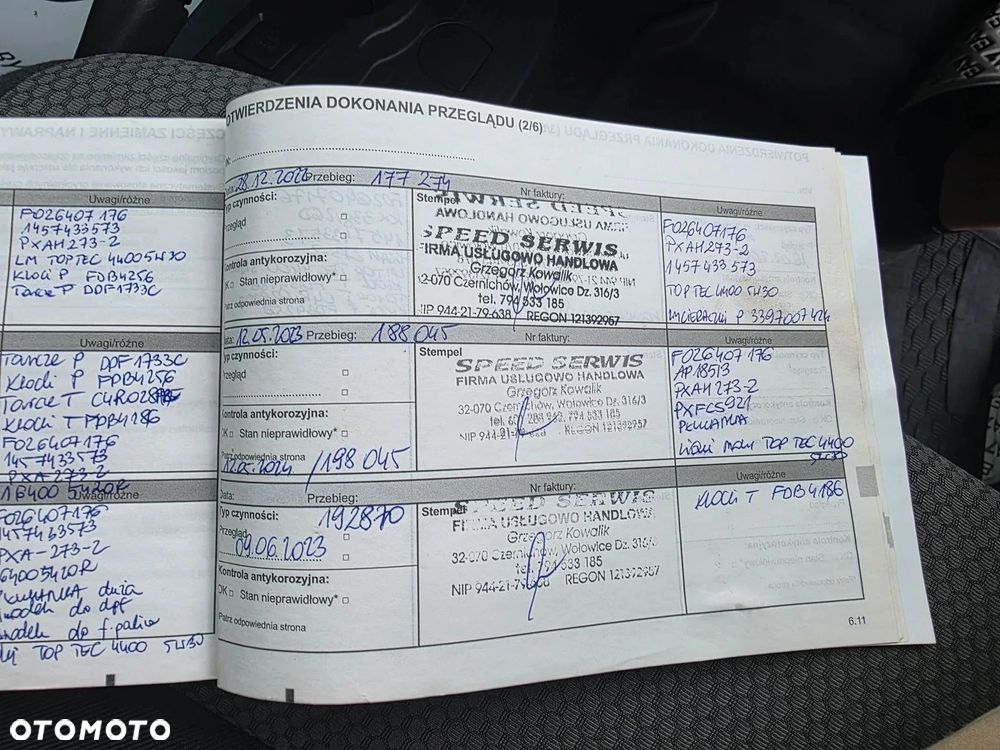 CZĘŚCI ZAMIENNE I NAPRAWY
Uwagi/różne
F026407176
1457433573
PXAH273-2
LM TOPTEC 4400 5W30
Klocki P FDB4256
Tarcze P DDF1733C
Uwagi/różne
Tarcze P DDF1733C
Klocki P FDB4256
Tarcze T
Klocki T FDB4186
F026407176
1457433573
PXA-273-2
Uwagi/różne
F026407176
1457433573
PXA-273-2
64005420R
duża
do dpf
do f.paliwa
TOP TEC 4400 5W30
POTWIERDZENIA DOKONANIA PRZEGLĄDU (2/6)
Data: 28.12.2022 Przebieg: 177 274
Nr faktury:
Uwagi/różne
Typ czynności:
Przegląd
Kontrola antykorozyjna:
OK Stan nieprawidłowy*
Patrz odpowiednia strona
Stempel
SPEED SERWIS
FIRMA USŁUGOWO HANDLOWA
Grzegorz Kowalik
32-070 Czernichów, Wołowice Dz. 316/3
tel. 794 533 185
NIP 944-21-79-638 REGON 121392957
F026407176
PXAH273-2
1457433573
TOP TEC 4400 5W30
Wycieraczki P 3397007424
Data: 12.05.2023 Przebieg: 188 045
Nr faktury:
Uwagi/różne
Typ czynności:
Przegląd
Kontrola antykorozyjna:
OK Stan nieprawidłowy*
Patrz odpowiednia strona
12.05.2024 / 198 045
Stempel
SPEED SERWIS
FIRMA USŁUGOWO HANDLOWA
Grzegorz Kowalik
32-070 Czernichów, Wołowice Dz. 316/3
794 533 185
REGON 121392957
F026407176
AP 185/3
PXAH273-2
PXFC5921
PŁUKANKA
TOP TEC 4400
5W30
Data: Przebieg:
192870
Nr faktury:
Uwagi/różne
Typ czynności:
Przegląd
09.06.2023
Kontrola antykorozyjna:
OK Stan nieprawidłowy*
Patrz odpowiednia strona
Stempel
SPEED SERWIS
FIRMA USŁUGOWO HANDLOWA
Grzegorz Kowalik
32-070 Czernichów, Wołowice Dz. 316/3
tel. 794 533 185
NIP 944-21-79-638 REGON 121392957
Klocki T FDB4186
6.11
OTOMOTO